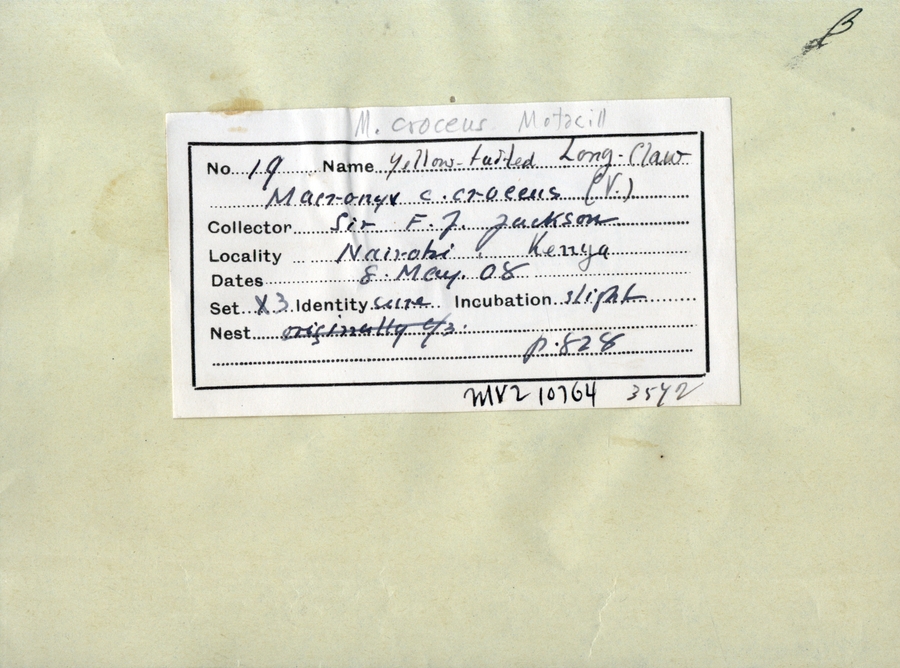 M. croceus Motacill
No. 19 Name Yellow-tailed Long-Claw
Macronyx c. croceus (V.)
Collector Sir F. J. Jackson
Locality Nairobi. Kenya
Dates 8. May. 08
Set X3 Identity sure Incubation slight
Nest originally c/3.
p. 828
MVZ 10764 3542